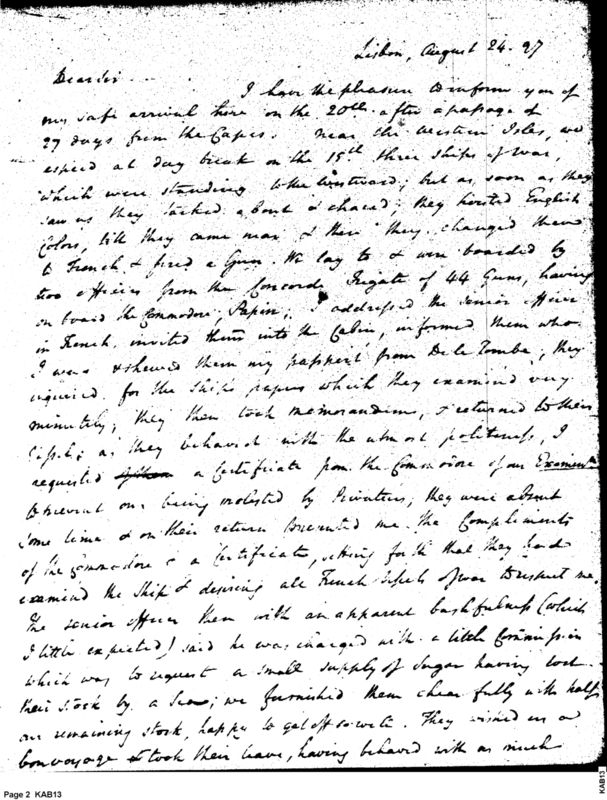 Lisbon, August 24. 97
Dear Sir
I have the pleasure to inform you of
my safe arrival here on the 20th after a passage of
27 days from the Capes. Near the Western Isles, we
espied at day break on the 15th three ships of war,
which were standing to the Westward; but as soon as they
saw us they tacked about & chaced; they hoisted English
Colors, till they came near & then they changed them
to French & fired a Gun. We lay to & were boarded by
two officers from the Concorde frigate of 44 Guns, having
on board the Commodore, Papin; I addressed the senior officer
in French, invited them into the Cabin, informed them who
I was & shewed them my passport from De la Tombe; they
inquired for the Ships papers which they examined very
minutely; they then took memorandums, & returned to their
as they behaved with the utmost politeness, I
requested a Certificate from the Commodore of our
to prevent our being molested by Privateers; they were absent
some time & on their return presented me the Complements
of the Commodore & a Certificate, setting forth that they had
examined the Ship & desiring all French Vessels of war to respect me.
The senior officer then with an apparent bashfulness (which
I little expected) said he was charged with a little Commission
which was to request a small supply of Sugar having lost
their stock by a Sea; we furnished them chearfully with half
our remaining stock, happy to get off so well. They wished us a
bon voyage & took their leave, having behaved with as much
Page 2 KAB13
KAB13